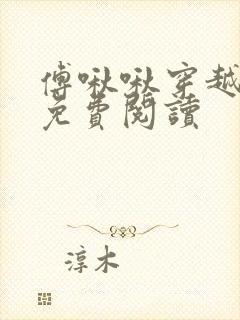 傅啾啾穿越
免費閱讀
淳木